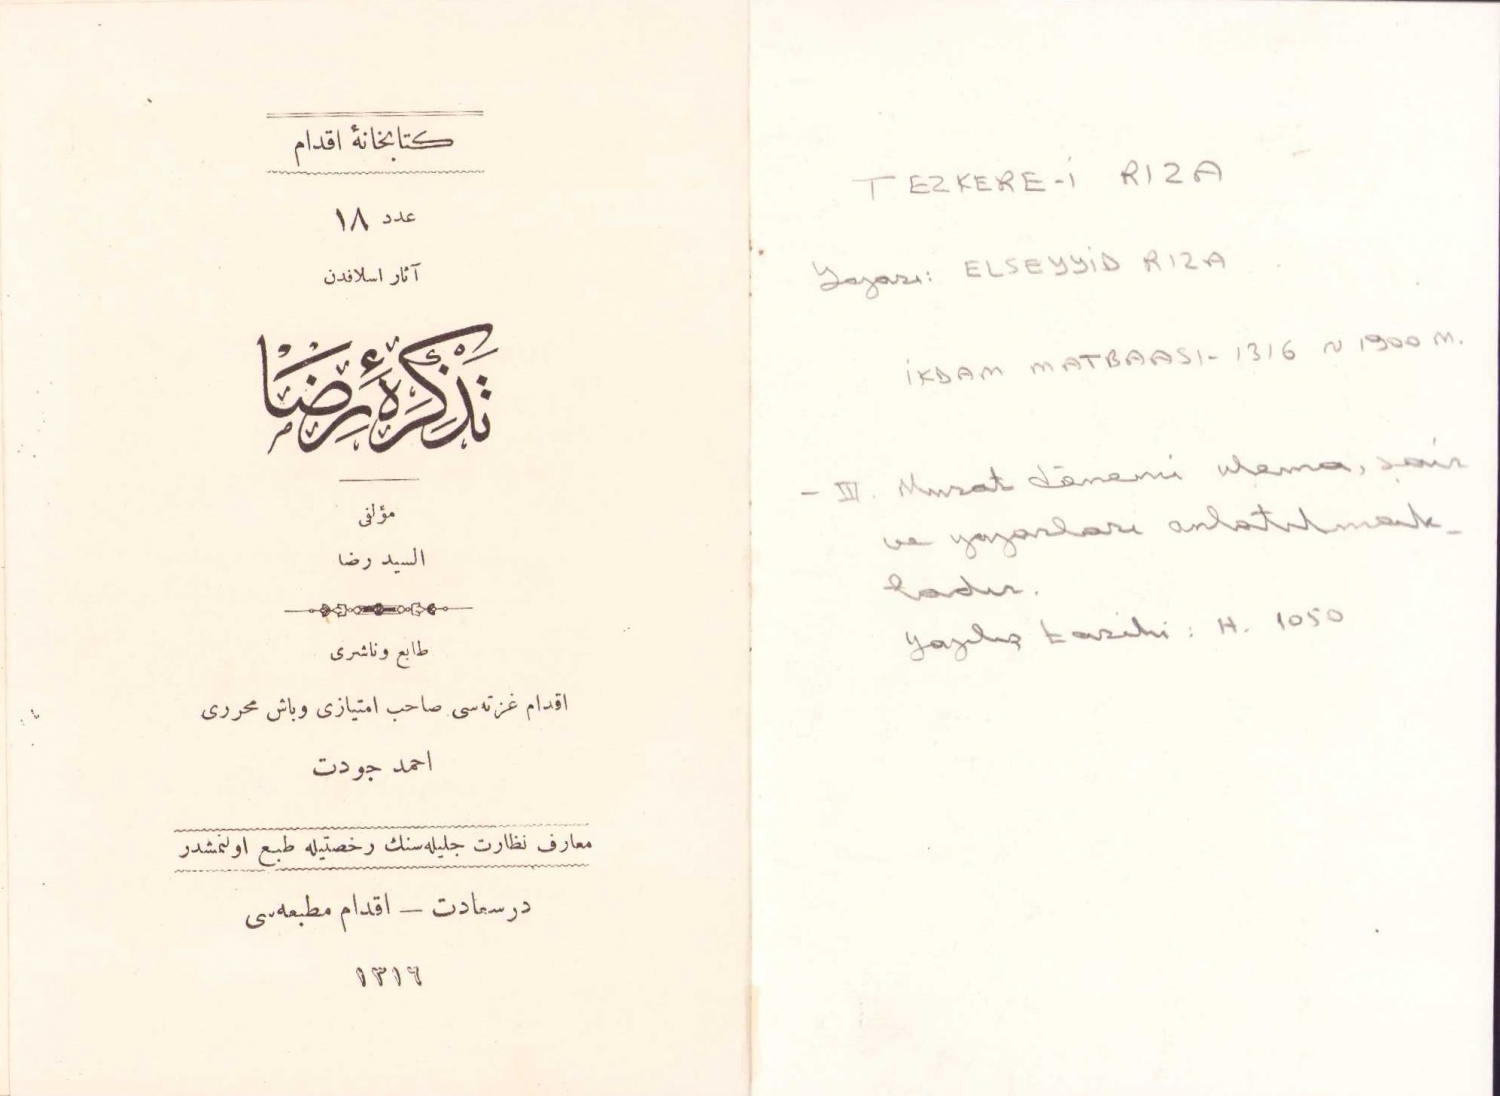 كتابخانهٔ اقدام
عدد ١٨
آثار اسلافدن
تَذْكِرَهٔ رِضَا
مؤلفى
السيد رضا
طابع وناشرى
اقدام غزته‌سى صاحب امتيازى وباش محررى
احمد جودت
معارف نظارت جليله‌سنك رخصتيله طبع اولنمشدر
درسعادت — اقدام مطبعه‌سى
١٣١٦
TEZKERE-İ RIZA
Yazarı: ELSEYYİD RIZA
İKDAM MATBAASI - 1316 ~ 1900 M.
- III. Murat dönemi ulema, şair
ve yazarları anlatılmak-
tadır.
Yazılış tarihi: H. 1050